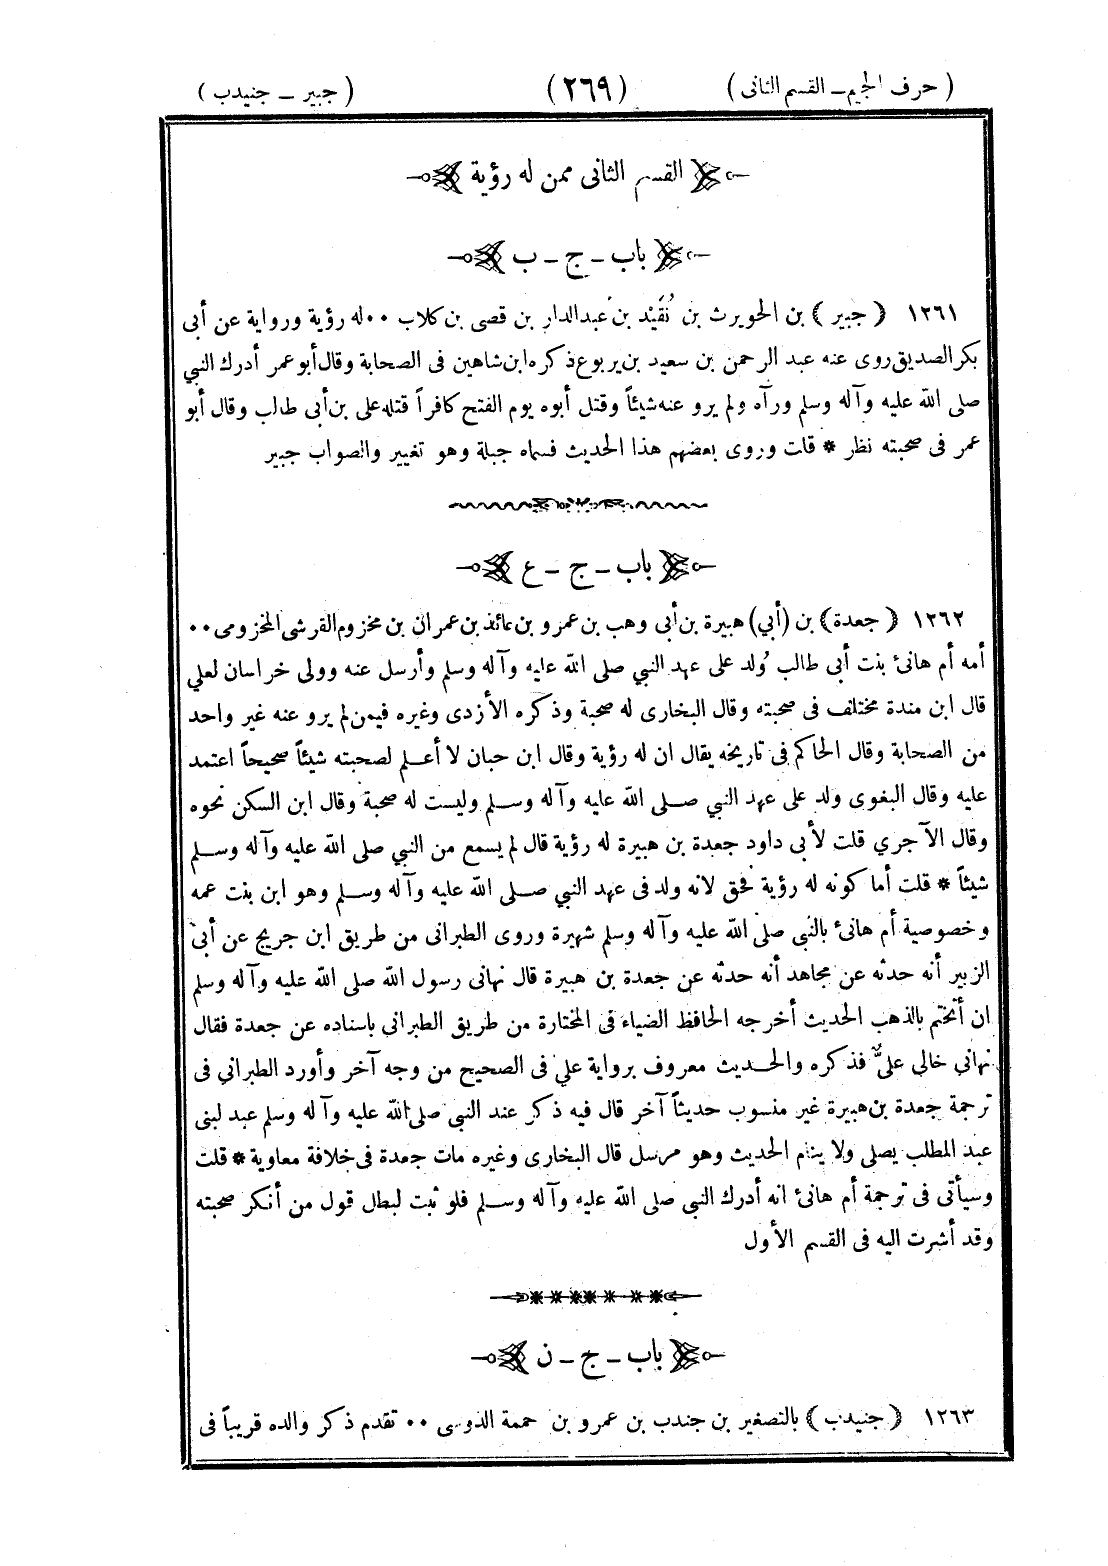 ( حرف الجيم ـ القسم الثانى ) (٢٦٩) ( جبير ـ جنيدب )
القسم الثانى ممن له رؤية
باب ـ ج ـ ب
١٢٦١ ( جبير ) بن الحويرث بن نُقَيْد بن عبدالدار بن قصى بن كلاب ٠٠ له رؤية ورواية عن أبى
بكر الصديق روى عنه عبد الرحمن بن سعيد بن يربوع ذكره ابن شاهين فى الصحابة وقال أبو عمر أدرك النبي
صلى الله عليه وآله وسلم ورآه ولم يرو عنه شيئاً وقتل أبوه يوم الفتح كافراً قتله على بن أبى طالب وقال أبو
عمر فى صحبته نظر * قلت وروى بعضهم هذا الحديث فسماه جبلة وهو تغيير والصواب جبير
باب ـ ج ـ ع
١٢٦٢ ( جعدة ) بن (أبي) هبيرة بن أبى وهب بن عمرو بن عائذ بن عمران بن مخزوم القرشى المخزومى ٠٠
أمه أم هانئ بنت أبى طالب وُلد على عهد النبي صلى الله عليه وآله وسلم وأرسل عنه وولى خراسان لعلي
قال ابن مندة مختلف فى صحبته وقال البخارى له صحبة وذكره الأزدى وغيره فيمن لم يرو عنه غير واحد
من الصحابة وقال الحاكم فى تاريخه يقال ان له رؤية وقال ابن حبان لا أعلم لصحبته شيئاً صحيحاً اعتمد
عليه وقال البغوى ولد على عهد النبي صلى الله عليه وآله وسلم وليست له صحبة وقال ابن السكن نحوه
وقال الآجري قلت لأبى داود جعدة بن هبيرة له رؤية قال لم يسمع من النبي صلى الله عليه وآله وسلم
شيئاً * قلت أما كونه له رؤية فحق لانه ولد فى عهد النبي صلى الله عليه وآله وسلم وهو ابن بنت عمه
وخصوصية أم هانئ بالنبي صلى الله عليه وآله وسلم شهيرة وروى الطبرانى من طريق ابن جريج عن أبى
الزبير أنه حدثه عن مجاهد أنه حدثه عن جعدة بن هبيرة قال نهانى رسول الله صلى الله عليه وآله وسلم
ان أتختم بالذهب الحديث أخرجه الحافظ الضياء فى المختارة من طريق الطبرانى باسناده عن جعدة فقال
نهاني خالي عليٌّ فذكره والحديث معروف برواية علي فى الصحيح من وجه آخر وأورد الطبرانى فى
ترجمة جعدة بن هبيرة غير منسوب حديثاً آخر قال فيه ذكر عند النبي صلى الله عليه وآله وسلم عبد لبنى
عبد المطلب يصلى ولا ينام الحديث وهو مرسل قال البخارى وغيره مات جعدة فى خلافة معاوية * قلت
وسيأتى فى ترجمة أم هانئ انه أدرك النبي صلى الله عليه وآله وسلم فلو ثبت لبطل قول من أنكر صحبته
وقد أشرت اليه فى القسم الأول
باب ـ ج ـ ن
١٢٦٣ ( جنيدب ) بالتصغير بن جندب بن عمرو بن حممة الدوسى ٠٠ تقدم ذكر والده قريباً فى